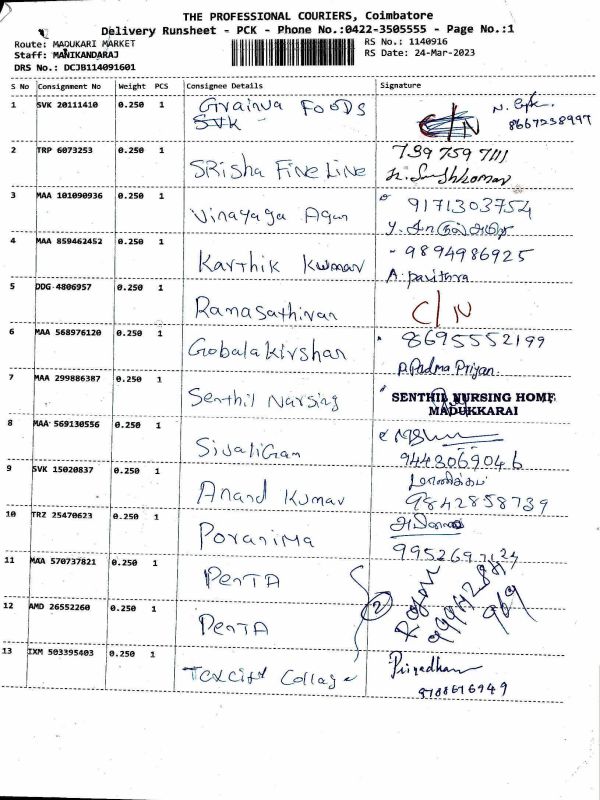 THE PROFESSIONAL COURIERS, Coimbatore
Delivery Runsheet - PCK - Phone No.:0422-3505555 - Page No.:1
Route: MADUKARI MARKET
RS No.: 1140916
Staff: MANIKANDARAJ
RS Date: 24-Mar-2023
DRS No.: DCJB114091601
S No Consignment No Weight PCS Consignee Details Signature
1 SVK 20111410 0.250 1 Grainva FOODS
SVK C/N 8667238997
2 TRP 6073253 0.250 1 SRisha Fine Line 739 759 7111
3 MAA 101090936 0.250 1 Vinayaga Agan 9171303754
4 MAA 859462452 0.250 1 Karthik Kumar - 9894986925
A. pavithra
5 DDG 4806957 0.250 1 Ramasathivan C/N
6 MAA 568976120 0.250 1 Gobalakirshan 8695552199
P. Padma Priyan
7 MAA 299886387 0.250 1 Senthil Narsing SENTHIL NURSING HOME
MADUKKARAI
8 MAA 569130556 0.250 1 SivaliGam
9443069046
9 SVK 15020837 0.250 1 Anand Kumar
9842858739
10 TRZ 25470623 0.250 1 PoraniMa
9952697124
11 MAA 570737821 0.250 1 PenTA
12 AMD 26552260 0.250 1 PenTA 2
13 IXM 503395403 0.250 1 Texcity Collage Priyadhan
9788676949